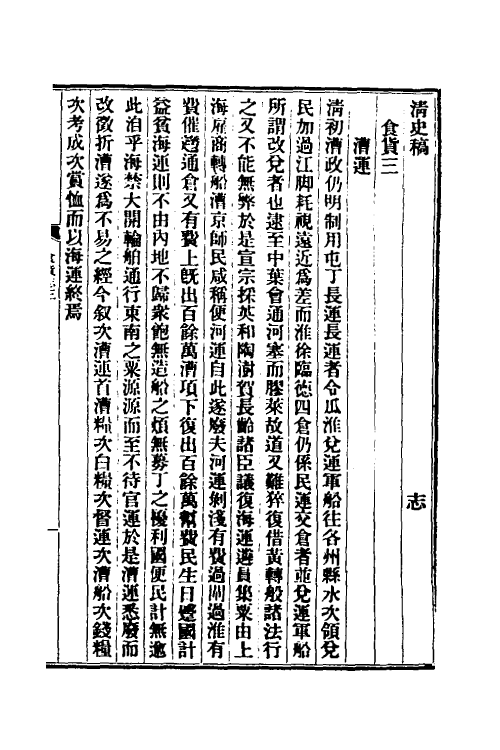 清史稿
志
食貨三
漕運
清初漕政仍明制用屯丁長運長運者令瓜淮兌運軍船往各州縣水次領兌
民加過江脚耗視遠近爲差而淮徐臨德四倉仍係民運交倉者並兌運軍船
所謂改兌者也逮至中葉會通河塞而膠萊故道又難猝復借黃轉般諸法行
之又不能無弊於是宣宗採英和陶澍賀長齡諸臣議復海運遴員集粟由上
海雇商轉船漕京師民咸稱便河運自此遂廢夫河運剝淺有費過閘過淮有
費催趲通倉又有費上既出百餘萬漕項下復出百餘萬幫費民生日蹙國計
益貧海運則不由內地不歸衆飽無造船之煩無募丁之擾利國便民計無逾
此洎乎海禁大開輪舶通行東南之粟源源而至不待官運於是漕運悉廢而
改徵折漕遂爲不易之經今敘次漕運首漕糧次白糧次督運次漕船次錢糧
次考成次賞恤而以海運終焉
一